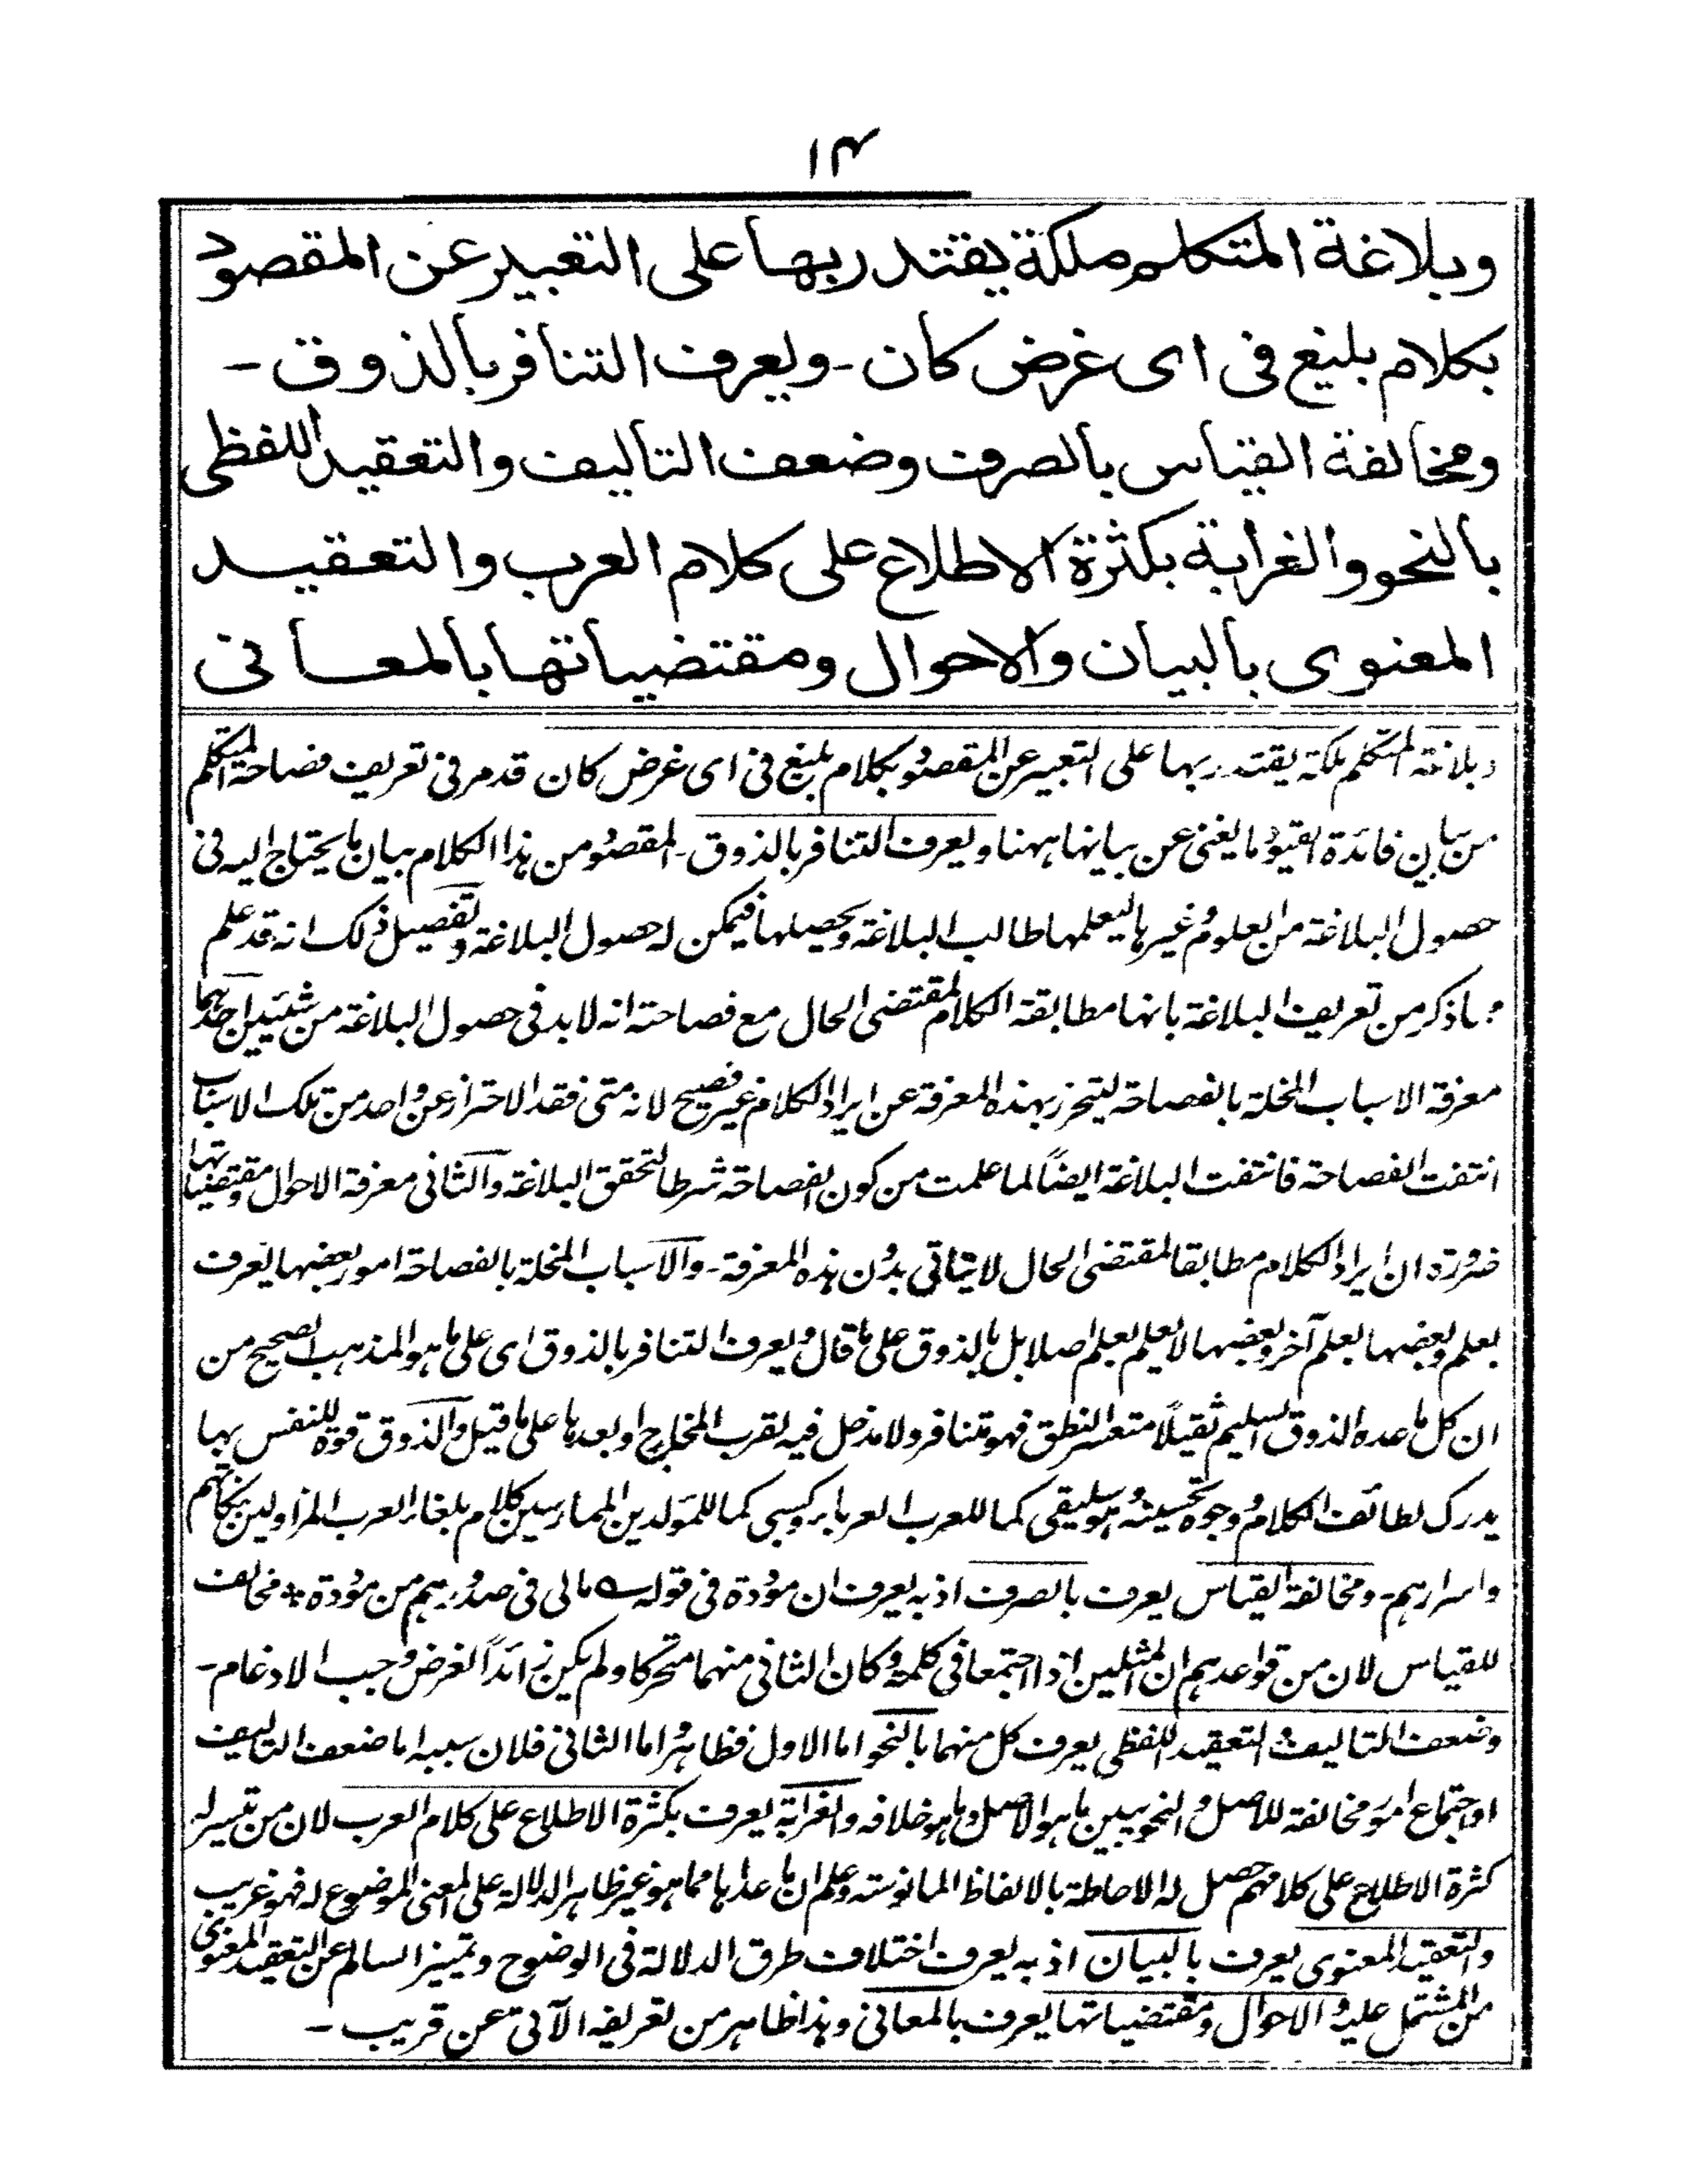 ١٤
وبلاغة المتكلم ملكة يقتدر بها على التعبير عن المقصود
بكلام بليغ فى اى غرض كان - ويعرف التنافر بالذوق -
ومخالفة القياس بالصرف وضعف التأليف والتعقيد اللفظى
بالنحو والغرابة بكثرة الاطلاع على كلام العرب والتعقيد
المعنوى بالبيان والاحوال ومقتضياتها بالمعانى
وبلاغة المتكلم ملكة يقتدر بها على التعبير عن المقصود بكلام بليغ فى اى غرض كان قد مر فى تعريف فصاحة المتكلم
من بيان فائدة القيود ما يغنى عن بيانها ههنا ويعرف التنافر بالذوق - المقصود من هذا الكلام بيان ما يحتاج اليه فى
حصول البلاغة من العلوم وغيرها ليعلمها طالب البلاغة ويحصيلها فيمكن له حصول البلاغة وتفصيل ذلك انه قد علم
مما ذكر من تعريف البلاغة بانها مطابقة الكلام لمقتضى الحال مع فصاحته انه لا بد فى حصول البلاغة من شيئين احدهما
معرفة الاسباب المخلة بالفصاحة ليتحرز بهذه المعرفة عن ايراد الكلام غير فصيح لانه متى فقد الاحتراز عن واحد من تلك الاسباب
انتفت الفصاحة فانتفت البلاغة ايضاً لما علمت من كون الفصاحة شرطا لتحقق البلاغة والثانى معرفة الاحوال ومقتضياتها
ضرورة ان ايراد الكلام مطابقا لمقتضى الحال لا يتاتى بدون هذه المعرفة - والاسباب المخلة بالفصاحة امور بعضها يعرف
بعلم وبعضها بعلم آخر وبعضها لا يعلم بعلم اصلا بل بالذوق على ما قال ويعرف التنافر بالذوق اى على ما هو المذهب الصحيح من
ان كل ما عده الذوق السليم ثقيلاً متعسر النطق فهو متنافر ولا مدخل فيه لقرب المخارج او بعدها على ما قيل والذوق قوة للنفس بها
يدرك لطائف الكلام ووجوه تحسينه وهو سليقى كما للعرب العرباء وكسبى كما للمولدين الممارسين كلام بلغاء العرب المزاولين نكاتهم
واسرارهم - ومخالفة القياس يعرف بالصرف اذ به يعرف ان موددة فى قوله ؎ مالى فى صدورهم من موددة * مخالف
للقياس لان من قواعدهم ان المثلين اذا اجتمعا فى كلمة وكان الثانى منهما متحركا ولم يكن زائداً لغرض وجب الادغام -
وضعف التاليف والتعقيد اللفظى يعرف كل منهما بالنحو اما الاول فظاهر واما الثانى فلان سببه اما ضعف التاليف
او اجتماع امور مخالفة للاصل والنحو يبين ما هو الاصل وما هو خلافه والغرابة يعرف بكثرة الاطلاع على كلام العرب لان من تيسر له
كثرة الاطلاع على كلامهم حصل له الاحاطة بالالفاظ المانوسة وعلم ان ما عداها مما هو غير ظاهر الدلالة على المعنى الموضوع له فهو غريب
والتعقيد المعنوى يعرف بالبيان اذ به يعرف اختلاف طرق الدلالة فى الوضوح وتمييز السالم عن التعقيد المعنوى
من المشتمل عليه والاحوال ومقتضياتها يعرف بالمعانى وهذا ظاهر من تعريفه الآتى عن قريب -